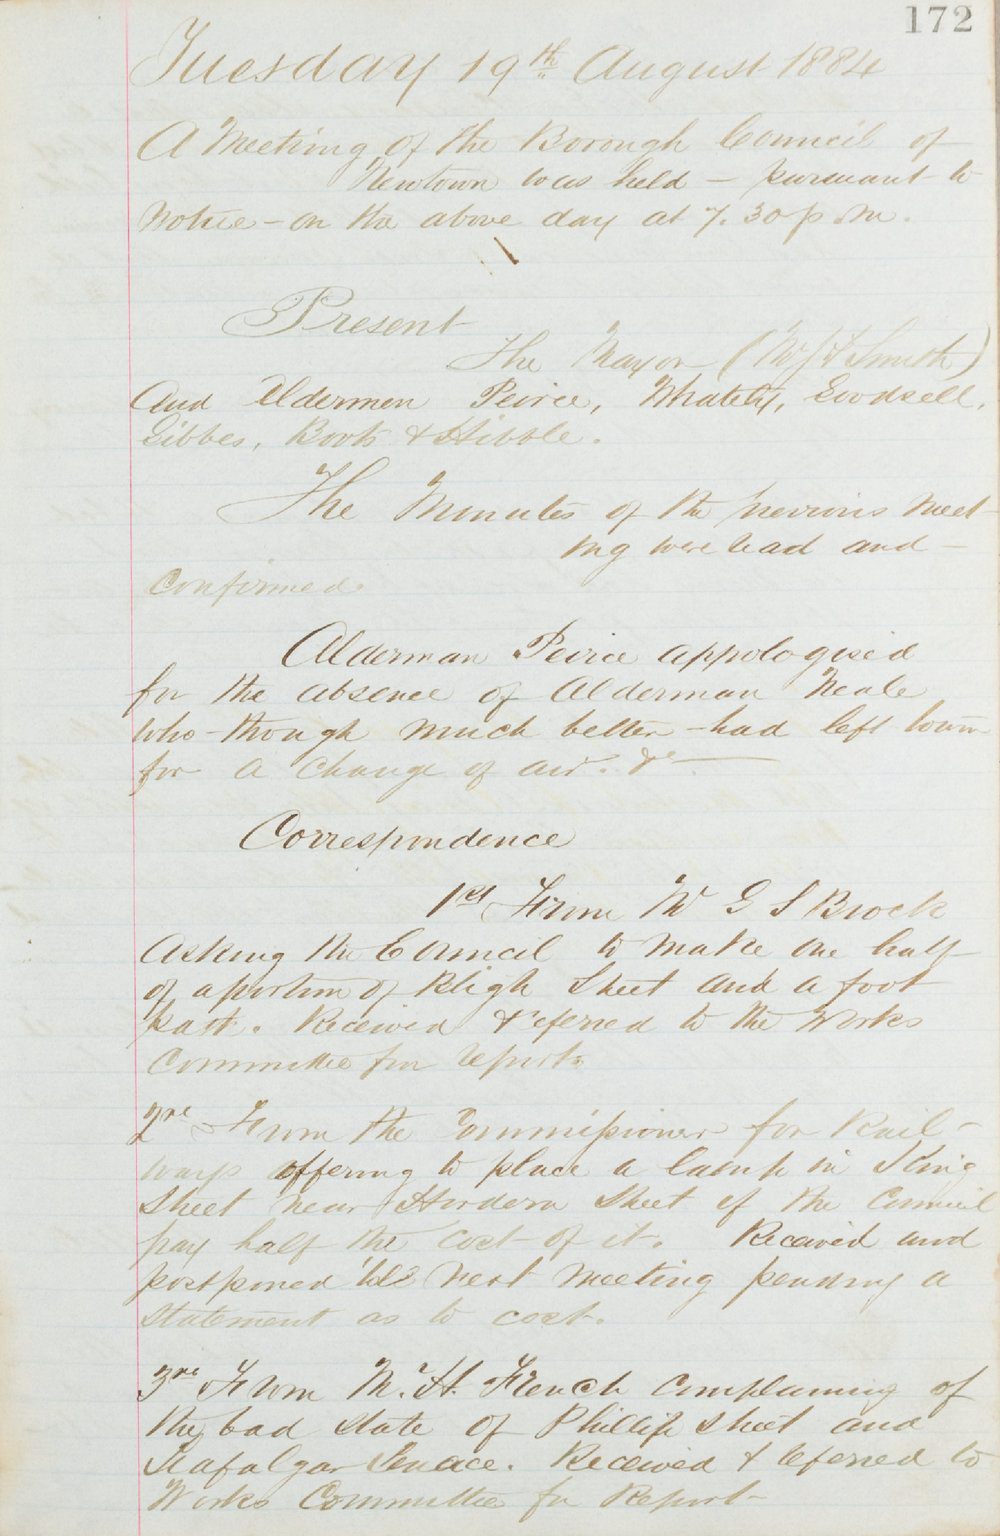 172
Tuesday 19th August 1884
A Meeting of the Borough Council of
Newtown was held – pursuant to
notice – on the above day at 7.30 p.m.
Present
The Mayor (Mr J Smith)
and Aldermen Peirce, Whately, Goodsell,
Gibbes, Boots & Hibble.
The Minutes of the previous meet-
ing were read and –
confirmed.
Alderman Peirce appologised
for the absence of Alderman Neale
who – though much better – had left town
for a change of air. &c –
Correspondence
1st From Mr G S Brock
asking the Council to make one half
of a portion of Bligh Street and a foot
path. Received & referred to the Works
Committee for report.
2nd From the Commissioner for Rail-
ways offering to place a lamp in King
Street near Hordern Street if the Council
pay half the cost of it. Received and
postponed till next meeting pending a
statement as to cost.
3rd From Mr. H. French complaining of
the bad state of Phillip Street and
Trafalgar Terrace. Received & referred to
Works Committee for Report